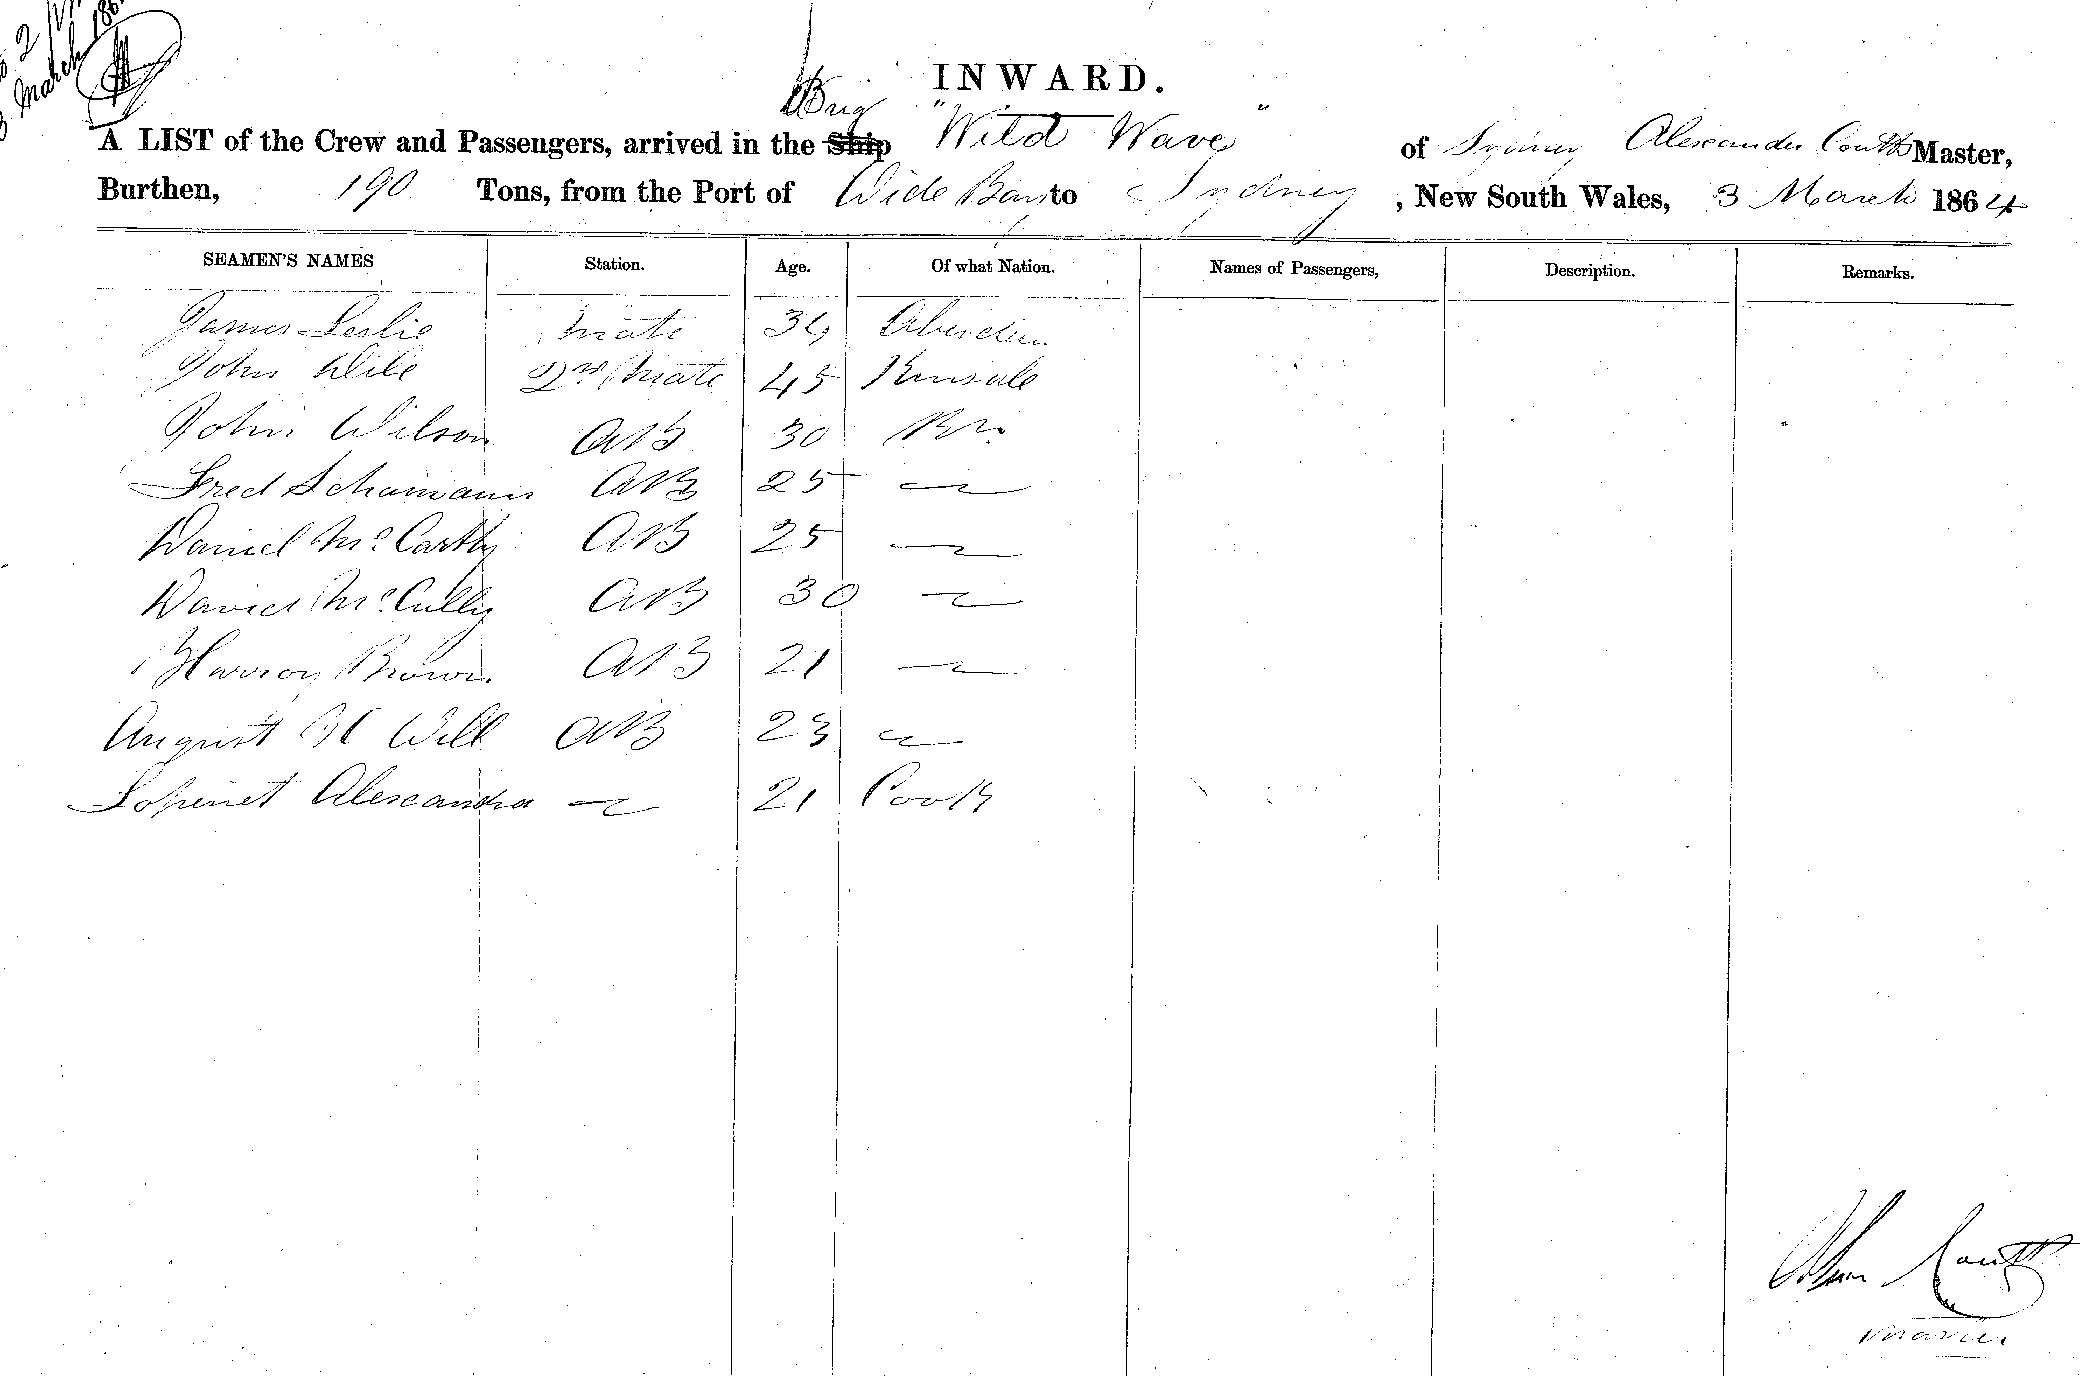 March 186
INWARD.
Brig "Wild Wave"
A LIST of the Crew and Passengers, arrived in the Ship of Sydney Alexander Coutts Master,
Burthen, 190 Tons, from the Port of Wide Bay to Sydney, New South Wales, 3 March 1864
SEAMEN'S NAMES Station. Age. Of what Nation. Names of Passengers, Description. Remarks.
James Leslie Mate 34 Aberdeen
John 2nd Mate 45 Kinsale
John Wilson AB 30
Fred Schamann AB 25 〃
Daniel McCarthy AB 25 〃
David McCully AB 30 〃
Harry Brown AB 21 〃
August H Will AB 23 〃
Lopinet Alexandra 〃 21 Cook
Coutts
Master